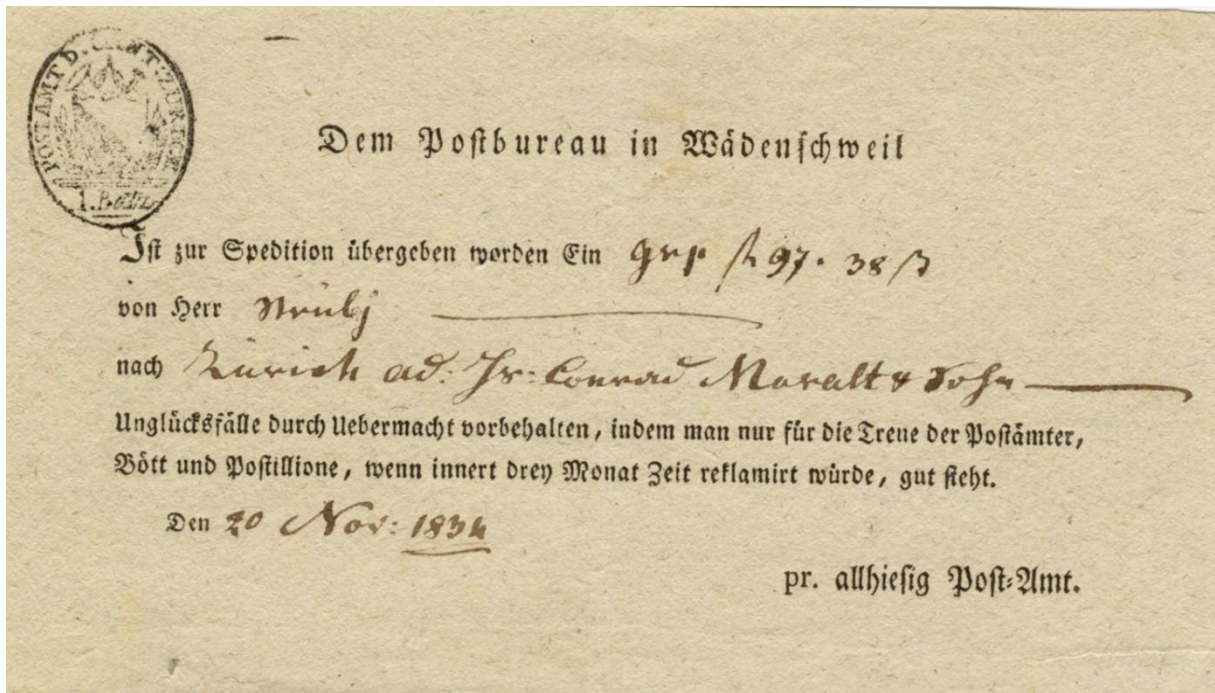 POSTAMT D. CANT: ZÜRICH
1. Batz
Dem Postbureau in Wädenschweil
Ist zur Spedition übergeben worden Ein grp fl 97. 38 ß
von Herr
nach Zürich ad: Hr: Conrad Muralt & Sohn
Unglücksfälle durch Uebermacht vorbehalten, indem man nur für die Treue der Postämter,
Bött und Postillione, wenn innert drey Monat Zeit reklamirt würde, gut steht.
Den 20 Nov: 1834
pr. allhiesig Post-Amt.